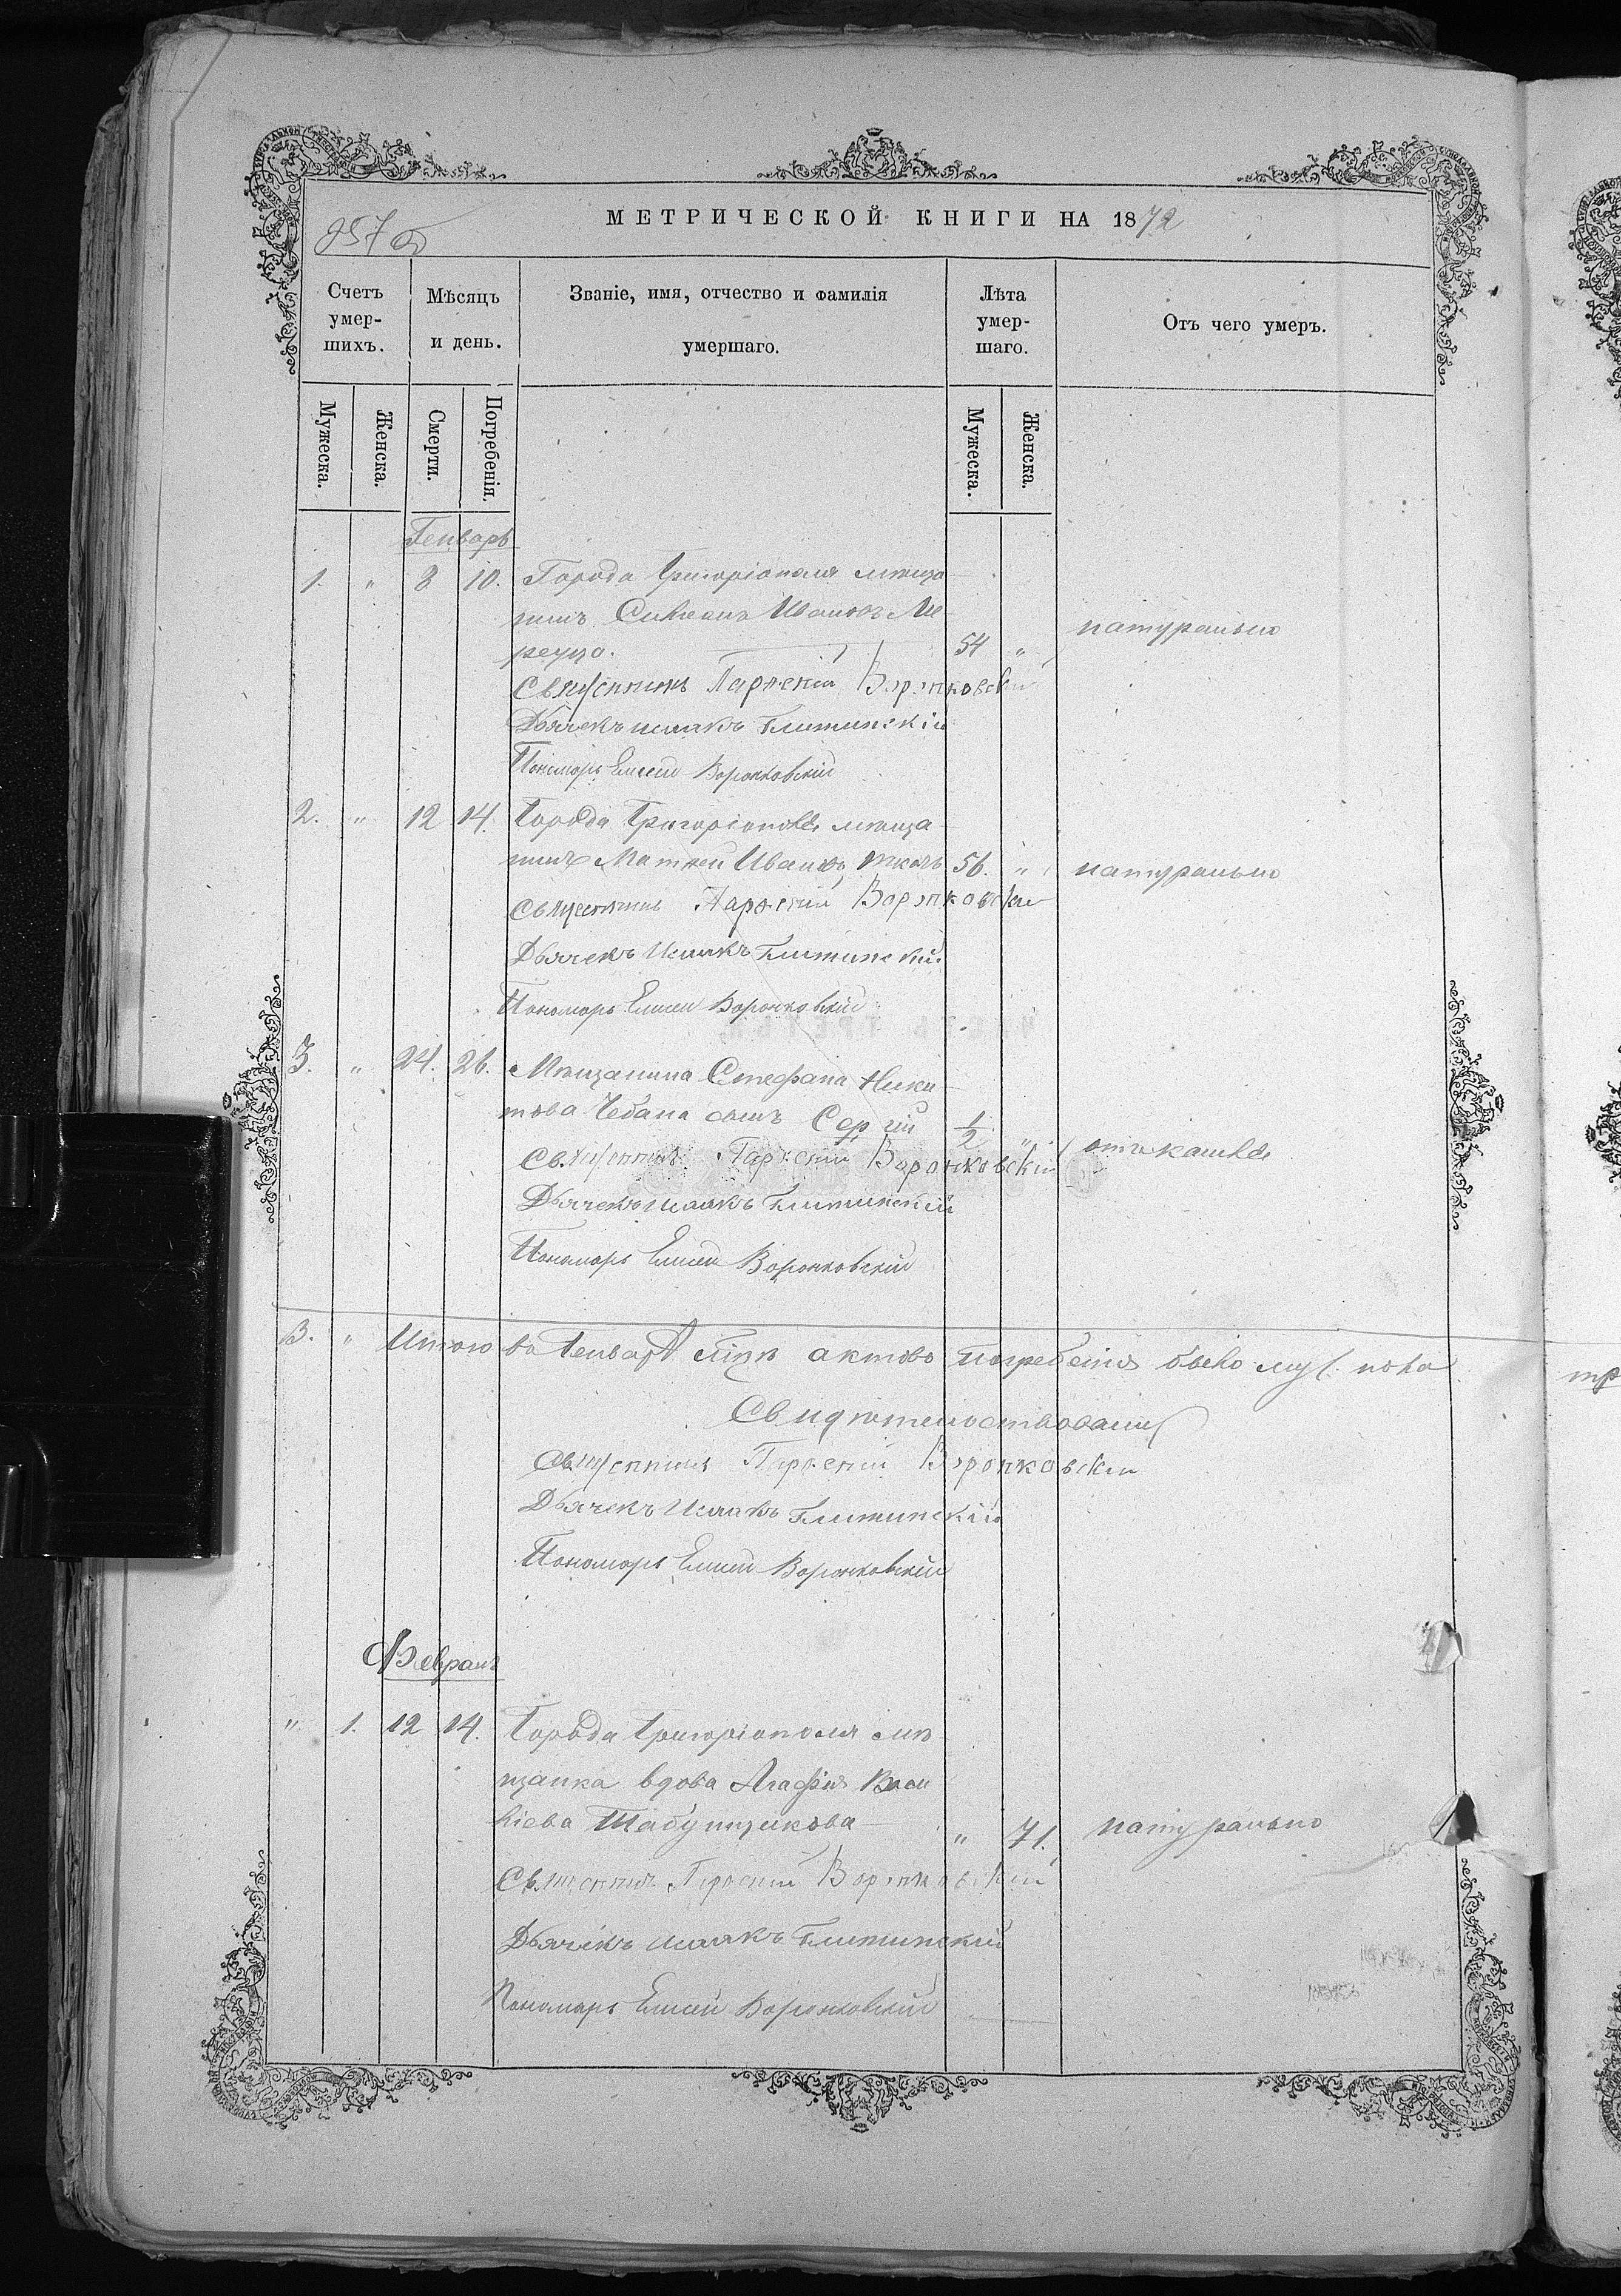 МЕТРИЧЕСКОЙ КНИГИ НА 1872
Счетъ умершихъ.
Мѣсяцъ и день.
Званіе, имя, отчество и фамилія умершаго.
Лѣта умершаго.
Отъ чего умеръ.
Мужеска.
Женска.
Смерти.
Погребенія.
Мужеска.
Женска.
Генварь
1. " 8 10. Города Григоріополя мѣща-
нинъ Симеонъ Ивановъ Ме
реуца. 54 " натурально
Священникъ Воронковскій
Дьячекъ Исаакъ
Пономарь Елисей Воронковскій
2. " 12 14. Города Григоріополя мѣща-
нинъ Матѳей Ивановъ Ткачъ 56. " натурально
Священникъ Воронковскій
Дьячекъ Исаакъ
Пономарь Елисей Воронковскій
3. " 24. 26. Мѣщанина Стефана Ники-
това Чебана сынъ Сергій 1/2 " отъ кашля
Священникъ Воронковскій
Дьячекъ Исаакъ
Пономарь Елисей Воронковскій
3. " Итого въ Генварѣ актовъ погребенія было муж. пола
Свидѣтельствовали
Священникъ Воронковскій
Дьячекъ Исаакъ
Пономарь Елисей Воронковскій
Февраль
" 1. 12 14. Города Григоріополя мѣ
щанка вдова Агафія Васи
ліева Табунщикова " 71. натурально
Священникъ Воронковскій
Дьячекъ Исаакъ
Пономарь Елисей Воронковскій